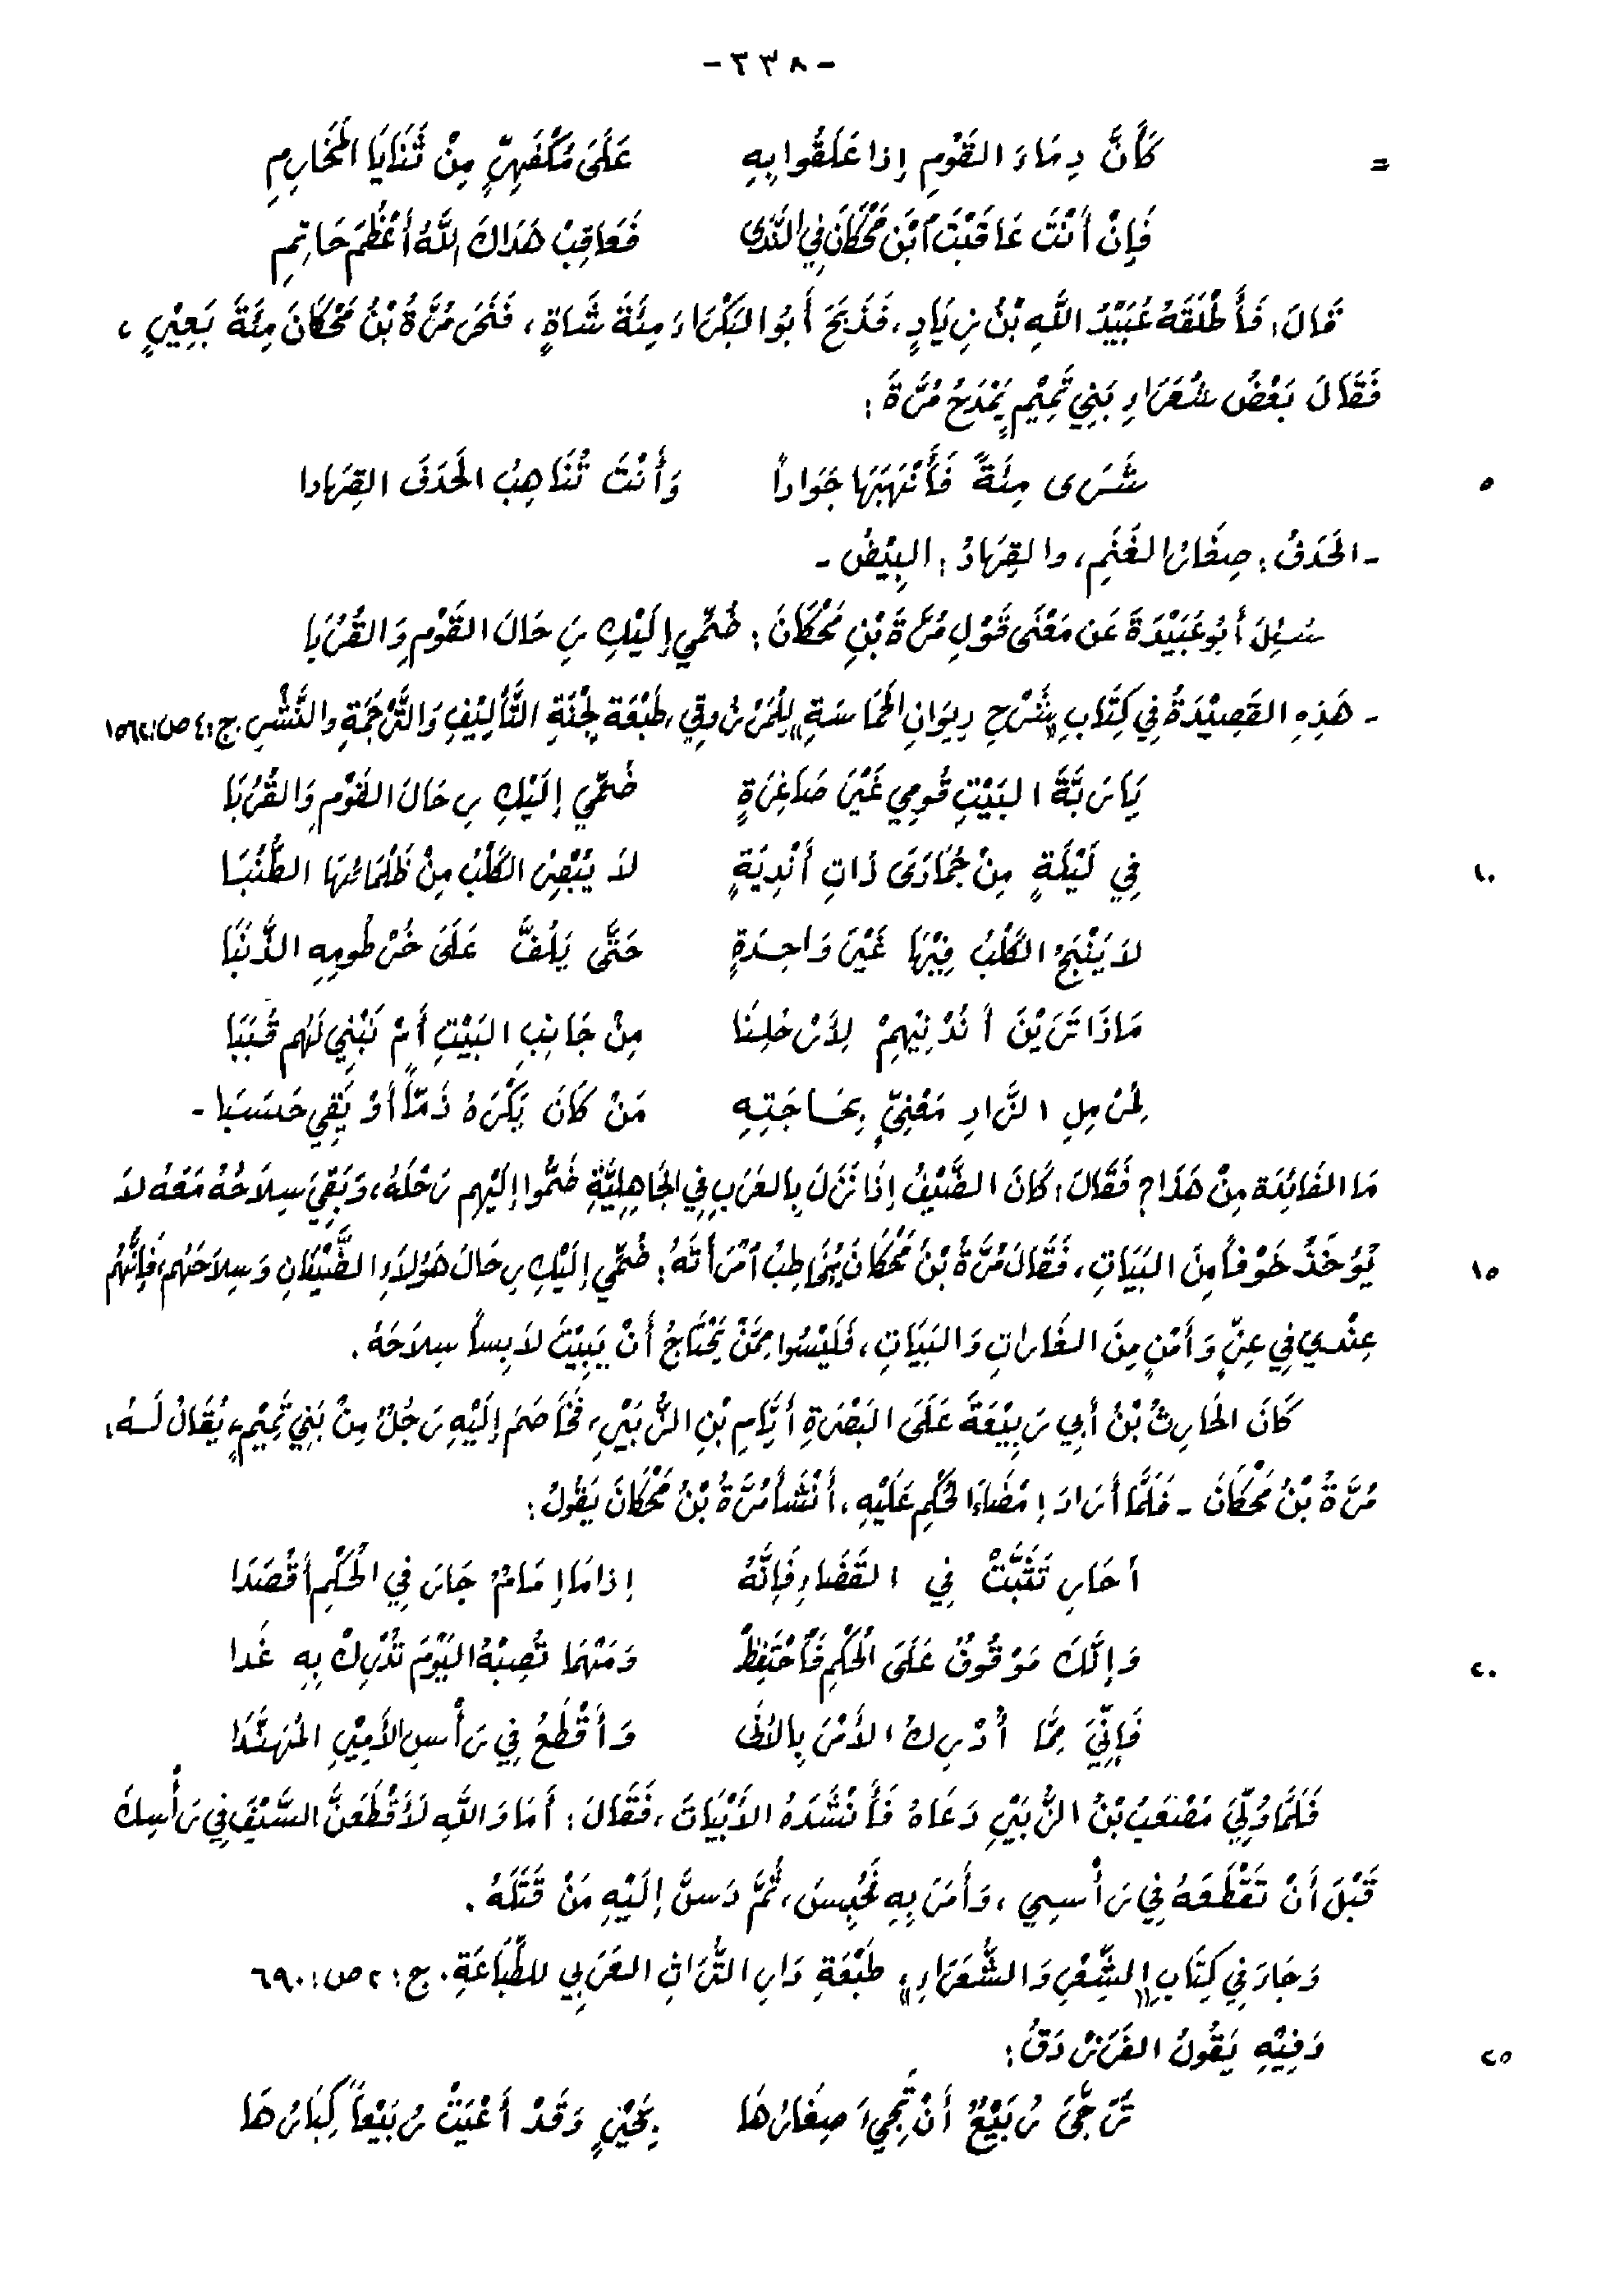 -٣٣٨-
= كَأَنَّ دِمَاءَ القَوْمِ إِذا عَلَقُوا بِهِ عَلَى مُكْفَهِرٍّ مِنْ ثَنَايَا المَخَارِمِ
فَإِنْ أَنْتَ عَاقَبْتَ ٱبْنَ مَحْكَانَ فِي النَّدَى فَعَاقِبْ هَدَاكَ اللَّهُ أَعْظُمَ حَاتِمِ
قالَ: فَأَطْلَقَهُ عُبَيْدُ اللَّهِ بْنُ زِيَادٍ، فَذَبَحَ أَبُو البَكْرَاءِ مِئَةَ شَاةٍ، فَنَحَرَ مُرَّةُ بْنُ مَحْكَانَ مِئَةَ بَعِيْرٍ،
فَقَالَ بَعْضُ شُعَرَاءِ بَنِي تَمِيْمٍ يَمْدَحُ مُرَّةَ:
٥ شَرَى مِئَةً فَأَنْهَبَهَا جَوَاداً وَأَنْتَ تُنَاهِبُ الحَذَفَ القِهَادا
- الحَذَفُ: صِغَارُ الغَنَمِ، والقِهَادُ: البِيْضُ -
سُئِلَ أَبُو عُبَيْدَةَ عَن مَعْنَى قَوْلِ مُرَّةَ بْنِ مَحْكَانَ: ضُمِّي إِلَيْكِ رِحَالَ القَوْمِ وَالقُرُبَا
- هَذِهِ القَصِيْدَةُ فِي كِتَابِ «شَرْحِ دِيوَانِ الحَمَاسَةِ» لِلْمَرْزُوقِي، طَبْعَة لَجْنَةِ التَّأْلِيْفِ وَالتَّرْجَمَةِ والنَّشْرِ. ج: ٤ ص: ١٥٦٢
يَا رَبَّةَ البَيْتِ قُومِي غَيْرَ صَاغِرَةٍ ضُمِّي إِلَيْكِ رِحَالَ القَوْمِ وَالقُرُبَا
١٠ فِي لَيْلَةٍ مِنْ جُمَادَى ذَاتِ أَنْدِيَةٍ لاَ يُبْصِرُ الكَلْبُ مِنْ ظَلْمَائِهَا الطُّنُبَا
لاَ يَنْبَحُ الكَلْبُ فِيْهَا غَيْرَ وَاحِدَةٍ حَتَّى يَلُفَّ عَلَى خُرْطُومِهِ الذَّنَبَا
مَاذَا تَرَيْنَ أَنُدْنِيْهِمْ لِأَرْحُلِنَا مِنْ جَانِبِ البَيْتِ أَمْ نَبْنِي لَهُم قُبَبَا
لِمُرْمِلِ الزَّادِ مَعْنِيٍّ بِحَاجَتِهِ مَنْ كَانَ يَكْرَهُ ذَمّاً أَوْ يَقِي حَسَبَا -
مَا الفَائِدَة مِنْ هَذَا؟ فَقَالَ: كَانَ الضَّيْفُ إِذَا نَزَلَ بِالعَرَبِ فِي الجَاهِلِيَّةِ ضَمُّوا إِلَيْهِم رَحْلَهُ، وَبَقِيَ سِلاَحُهُ مَعَهُ لاَ
١٥ يُؤخَذُ خَوْفاً مِنَ البَيَاتِ، فَقَالَ مُرَّةُ بْنُ مَحْكَانَ يُخَاطِبُ ٱمْرَأَتَهُ: ضُمِّي إِلَيْكِ رِحَالَ هَؤُلاَءِ الضِّيْفَانِ وَسِلاَحَهُم، فَإِنَّهُم
عِنْدِي فِي عِزٍّ وَأَمْنٍ مِنَ الغَارَاتِ وَالبَيَاتِ، فَلَيْسُوا مِمَّنْ يَحْتَاجُ أَنْ يَبِيْتَ لاَبِساً سِلاَحَهُ.
كَانَ الحَارِثُ بْنُ أَبِي رَبِيْعَةَ عَلَى البَصْرَةِ أَيَّامِ بْنِ الزُّبَيْرِ، فَخَاصَمَ إِلَيْهِ رَجُلٌ مِنْ بَنِي تَمِيْمٍ، يُقَالُ لَهُ:
مُرَّةُ بْنُ مَحْكَانَ - فَلَمَّا أَرَادَ إِمْضَاءَ الحُكْمِ عَلَيْهِ، أَنْشَأَ مُرَّةُ بْنُ مَحْكَانَ يَقُولُ:
أَحَارِ تَثَبَّتْ فِي القَضَاءِ فَإِنَّهُ إِذا مَا إِمَامٌ جَارَ فِي الحُكْمِ أَقْصَدَا
٢٠ وَإِنَّكَ مَوْقُوفٌ عَلَى الحُكْمِ فَٱحْتَفِظْ وَمَهْمَا تُصِبْهُ اليَوْمَ تُدْرِكْ بِهِ غَدا
فَإِنِّيَ مِمَّا أُدْرِكُ الأَمْرَ بِالأَنَى وَأَقْطَعُ فِي رَأْسِ الأَمِيْرِ المُهَنَّدَا
فَلَمَّا وُلِّيَ مَصْعَبُ بْنُ الزُّبَيْرِ دَعَاهُ فَأَنْشَدَهُ الأَبْيَاتَ، فَقَالَ: أَمَا وَاللَّهِ لَأَقْطَعَنَّ السَّيْفَ فِي رَأْسِكَ
قَبْلَ أَنْ تَقْطَعَهُ فِي رَأْسِي، وَأَمَرَ بِهِ فَحُبِسَ، ثُمَّ دَسَّ إِلَيْهِ مَنْ قَتَلَهُ.
وَجَاءَ فِي كِتَابِ «الشِّعْرِ وَالشُّعَرَاءِ» طَبْعَةِ دَارِ التُّرَاثِ العَرَبِي للطِّبَاعَةِ. ج: ٢ ص: ٦٩٠
٢٥ وَفِيْهِ يَقُولُ الفَرَزْدَقُ:
تَرَجَّى رُبَيْعٌ أَنْ تَجِيءَ صِغَارُهَا بِخَيْرٍ وَقَدْ أَعْيَتْ رُبَيْعاً كِبَارُهَا